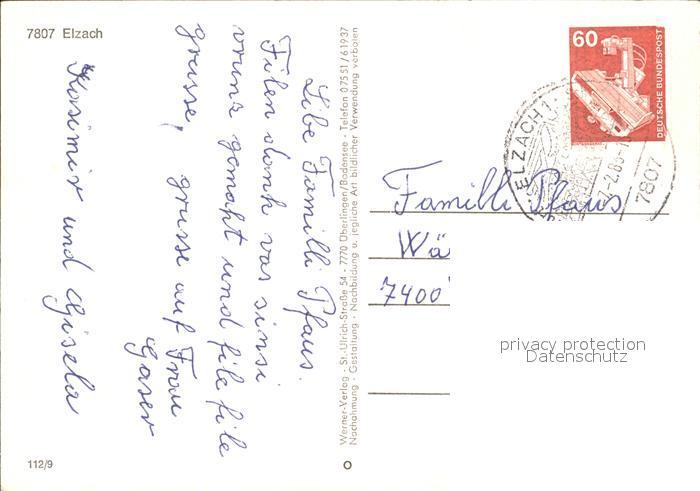 7807 Elzach
Libe Familli Pfaus.
Filen dank vas sinsi
vruns gemaht und file file
grusse, grusse auf Frau
Gaser
Kasimir und Gisela
112/9
Werner-Verlag · St.-Ulrich-Straße 54 · 7770 Überlingen/Bodensee · Telefon 07551/61937
Nachahmung · Gestaltung · Nachbildung u. jegliche Art bildlicher Verwendung verboten
60
DEUTSCHE BUNDESPOST
ELZACH 1
7807
Familli Pfaus
Wä
7400
privacy protection
Datenschutz